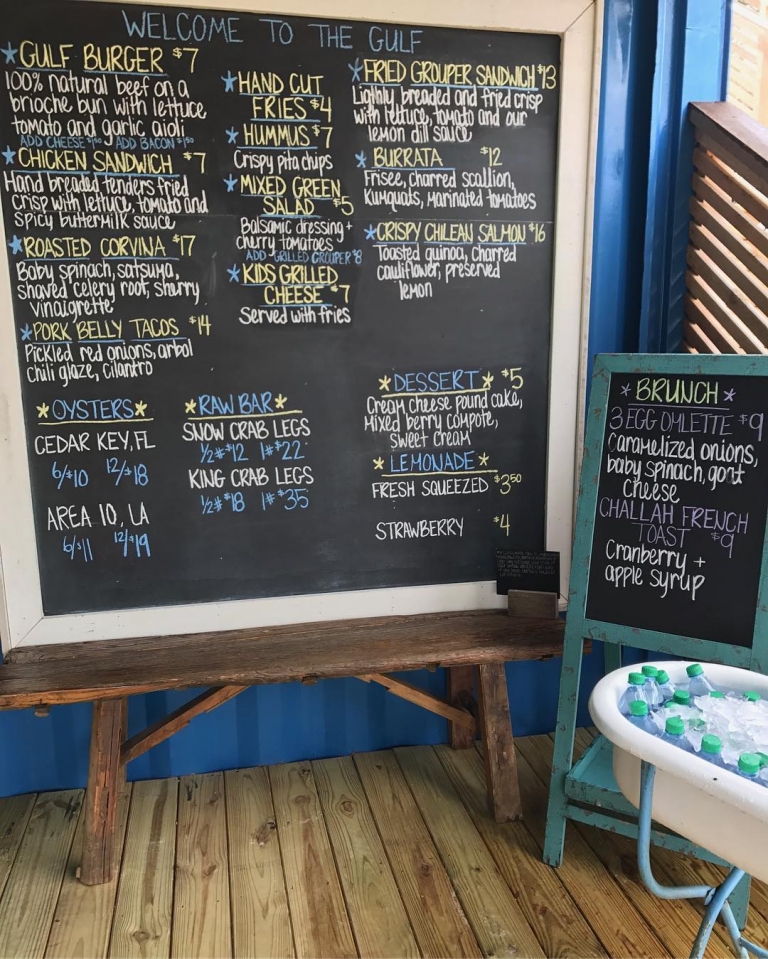 WELCOME TO THE GULF
GULF BURGER $7
100% natural beef on a
brioche bun with lettuce
tomato and garlic aioli
ADD CHEESE $1.50 ADD BACON $1.50
CHICKEN SANDWICH $7
Hand breaded tenders fried
crisp with lettuce, tomato and
spicy buttermilk sauce
ROASTED CORVINA $17
Baby spinach, satsuma,
shaved celery root, sherry
vinaigrette
PORK BELLY TACOS $14
Pickled red onions, arbol
chili glaze, cilantro
HAND CUT
FRIES $4
HUMMUS $7
Crispy pita chips
MIXED GREEN
SALAD $5
Balsamic dressing +
cherry tomatoes
ADD GRILLED GROUPER $8
KIDS GRILLED
CHEESE $7
Served with fries
FRIED GROUPER SANDWICH $13
Lightly breaded and fried crisp
with lettuce, tomato and our
lemon dill sauce
BURRATA $12
Frisee, charred scallion,
Kumquats, marinated tomatoes
CRISPY CHILEAN SALMON $16
Toasted quinoa, charred
cauliflower, preserved
lemon
OYSTERS
CEDAR KEY, FL
6/$10 12/$18
AREA 10, LA
6/$11 12/$19
RAW BAR
SNOW CRAB LEGS
1/2# $12 1# $22
KING CRAB LEGS
1/2# $18 1# $35
DESSERT $5
Cream cheese pound cake,
Mixed berry compote,
sweet cream
LEMONADE
FRESH SQUEEZED $3.50
STRAWBERRY $4
BRUNCH
3 EGG OMLETTE $9
Caramelized onions,
baby spinach, goat
cheese
CHALLAH FRENCH
TOAST $9
Cranberry +
apple syrup